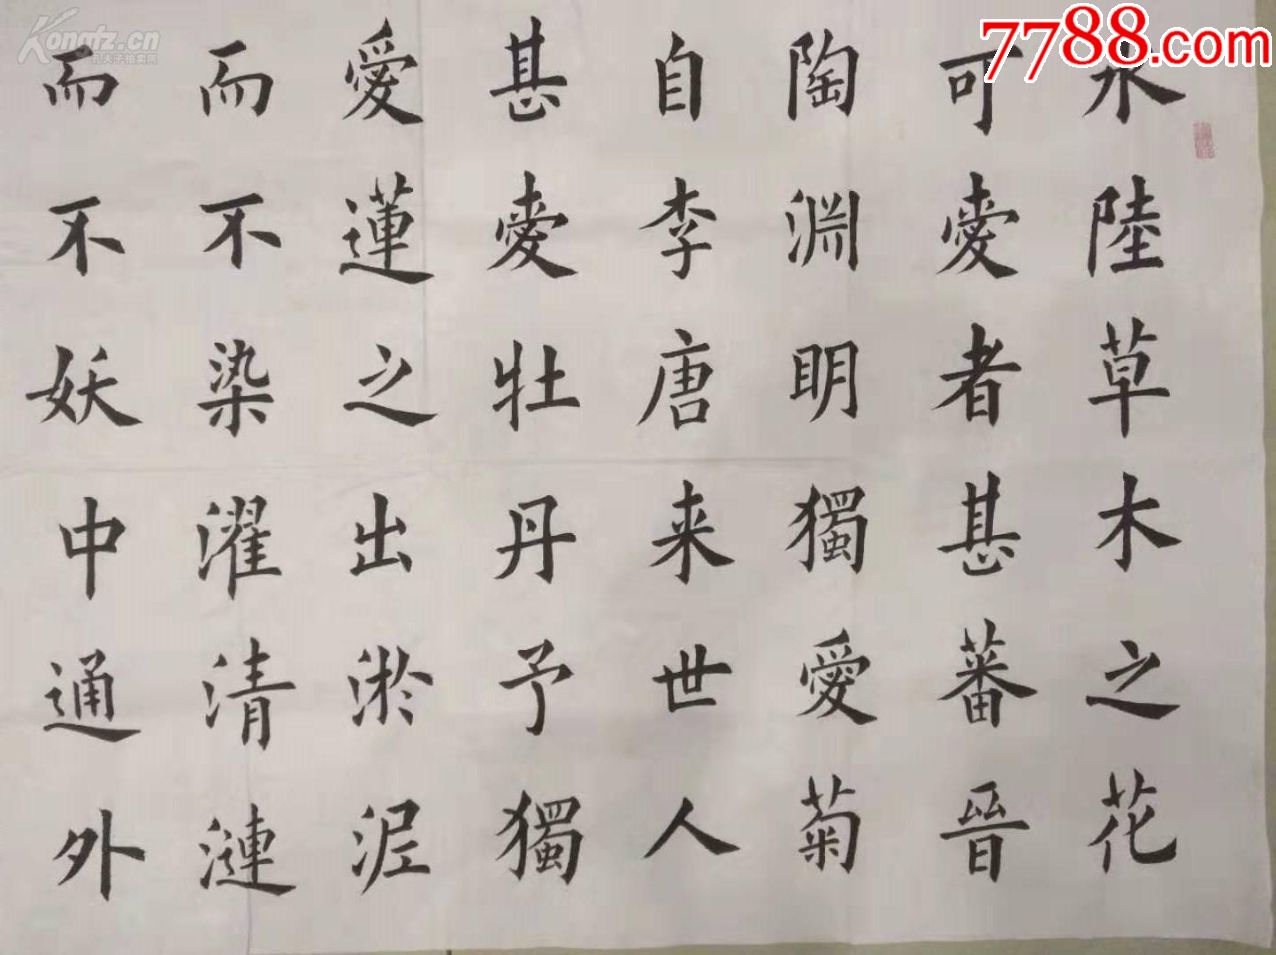 水陸草木之花
可愛者甚蕃晉
陶淵明獨愛菊
自李唐来世人
甚愛牡丹予獨
愛蓮之出淤泥
而不染濯清漣
而不妖中通外
7788.com
Kongfz.cn
孔夫子拍卖网